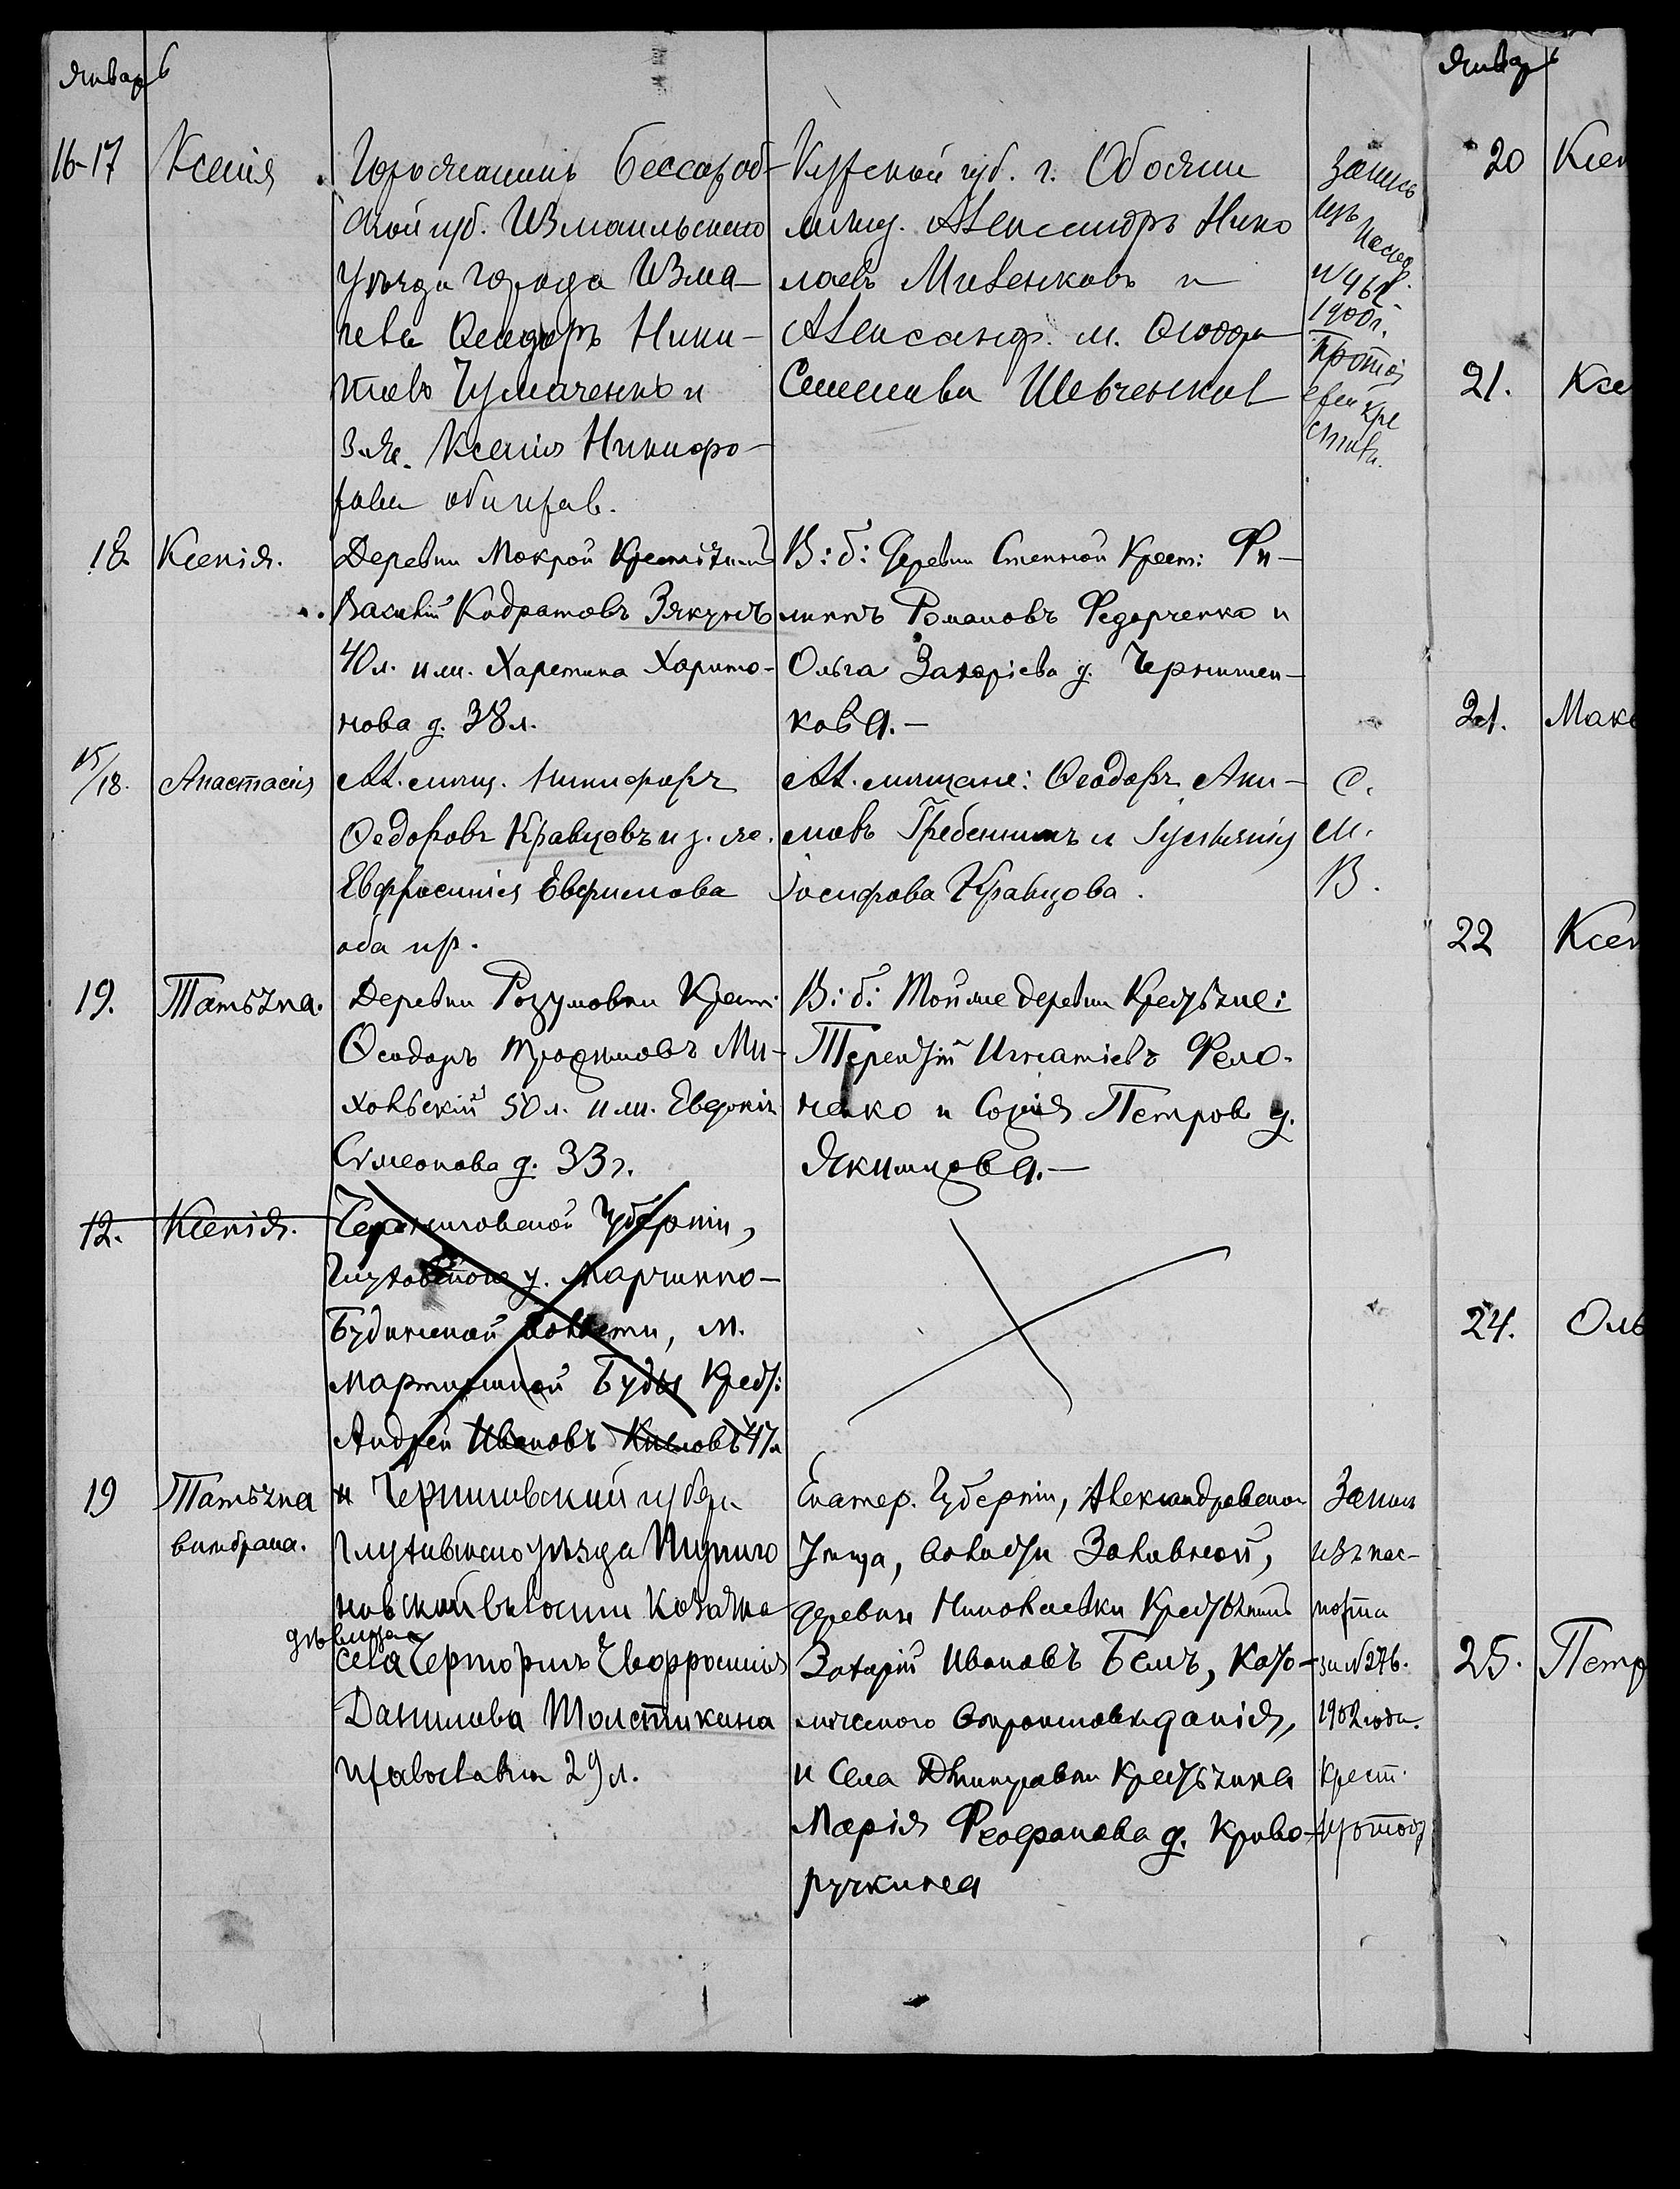 Январь
16-17
Ксенія
Горожанинъ бессараб-
ской губ. Измаильскаго
уѣзда города Измаи-
Ники-
Чумаченко и
з. ж. Ксенія Никифо-
рова об. прав.
Курской губ. г. Обояни
мѣщ. Александръ Нико
лаевъ Мивенковъ и
Александ. м. Ѳеодора
Семенова Шевченкова
Запись
изъ
1900 г.
Протоі
ерей кре
стилъ.
18
Ксенія.
Деревни Мокрой Крестьянинъ
Василій Кодратовъ Зякунъ
40 л. и ж. Харетина Харито-
нова д. 38 л.
В: б: Деревни Степной Крест: Фи-
липпъ Романовъ Федорченко и
Ольга Захаріева д. Чернишен-
кова.-
15/18.
Анастасія
Ал. мѣщ. Никифоръ
Ѳедоровъ Кравцовъ и з. ж.
Евфросинія Евфимова
оба пр.
Ал. мѣщане: Ѳеодоръ Аки-
мовъ Гребенникъ и
Іосифова Кравцова.
С.
м.
В.
19.
Татьяна.
Деревни Розумовки Крест:
Ѳеодоръ Трофимовъ Ми-
хольскій 50 л. и ж. Евдокія
Симеонова д. 33 г.
В: б: Той же деревни Крестьяне:
Терентій Игнатіевъ Фело-
ненко и Софія Петрова д.
Якимцова.-
12.
Ксенія.
Черниговской Губерніи,
Глуховского у. Марчихино-
Будинской волости, м.
Мартишиной Буды Крест:
Андрей Ивановъ 47 л
19
Татьяна
выбрана.
и Черниговской губерн
Глуховского уѣзда
новской волости Козачка
дѣвица
села Черторигъ Евфросинія
Данилова Толстикина
православн 29 л.
Екатер. Губерніи, Александровскаго
Уѣзда, волости Заливной,
деревни Николаевки Крестьянинъ
Захарій Ивановъ Бемъ, Като-
лическаго вѣроисповѣданія,
и села Дмитровки Крестьянка
Марія Феофанова д. Криво-
ручкина
Запись
изъ пас-
порта
за N 276.
1902 года.
Крест.
протоі
Январь
20
Ксен
21.
Ксе
21.
Мака
22
Ксен
24.
Оль
25.
Петр